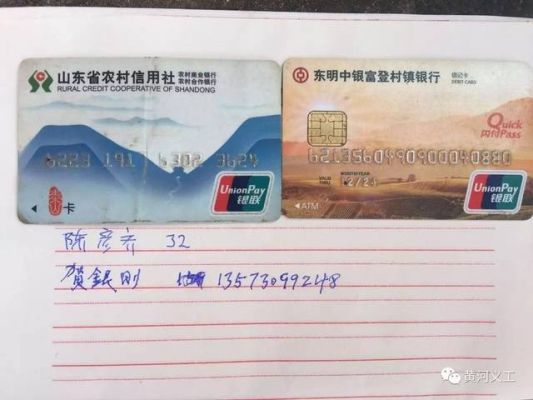 山东省农村信用社 农村商业银行 农村合作银行
RURAL CREDIT COOPERATIVE OF SHANDONG
6223 191 6302 3624
卡
UnionPay
银联
东明中银富登村镇银行 借记卡
DEBIT CARD
Quick Pass
闪付
6213560490900040880
VALID THRU MONTH/YEAR
ATM
UnionPay
银联
陈彦 32
贺銀刚 13573099248
黄河义工